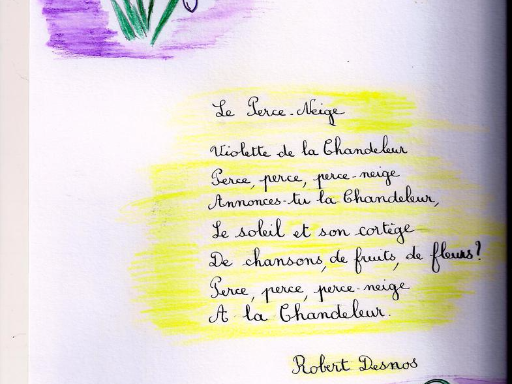 Le Perce-Neige
Violette de la Chandeleur
Perce, perce, perce-neige
Annonces-tu la Chandeleur,
Le soleil et son cortège
De chansons, de fruits, de fleurs?
Perce, perce, perce-neige
A la Chandeleur.
Robert Desnos